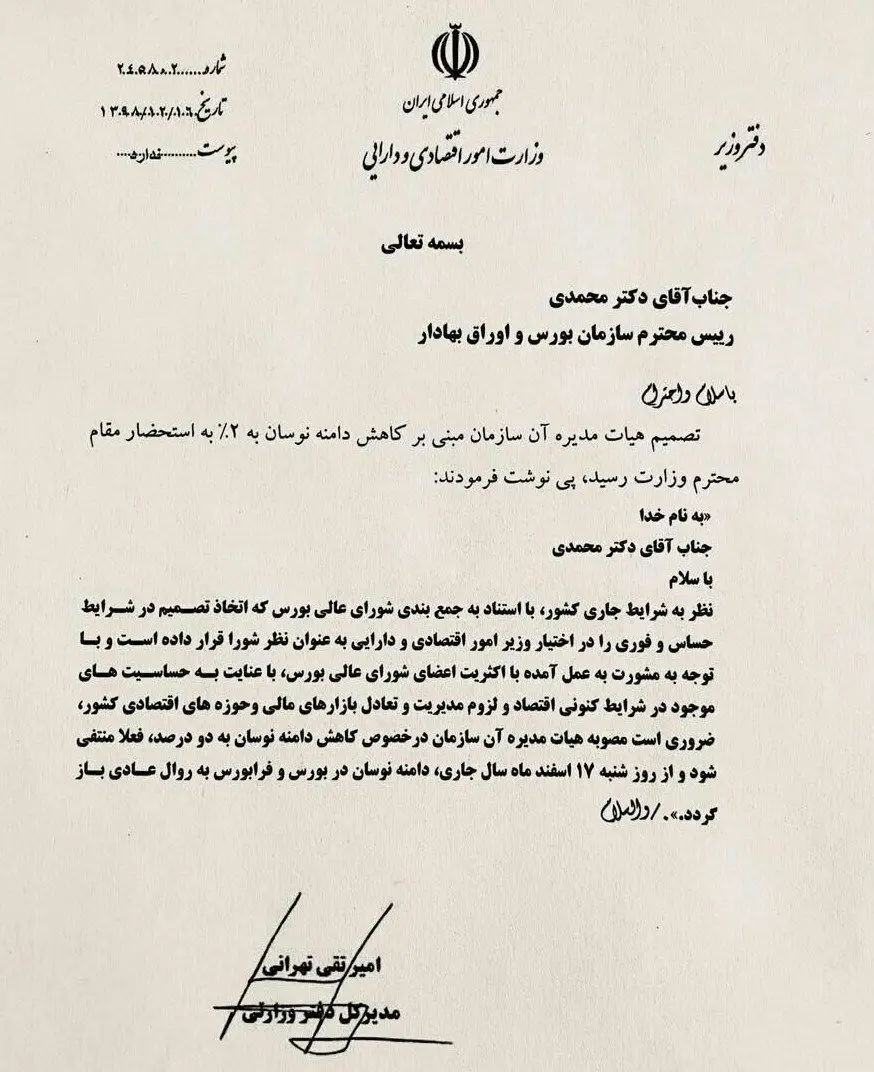 جمهوری اسلامی ایران
وزارت امور اقتصادی و دارایی
دفتر وزیر
شماره ۲۴۵۸۰۲
تاریخ ۱۳۹۸/۱۲/۱۶
پیوست ندارد
بسمه تعالی
جناب‌آقای دکتر محمدی
رییس محترم سازمان بورس و اوراق بهادار
باسلام و احترام
تصمیم هیات مدیره آن سازمان مبنی بر کاهش دامنه نوسان به ۲٪ به استحضار مقام
محترم وزارت رسید، پی نوشت فرمودند:
«به نام خدا
جناب آقای دکتر محمدی
با سلام
نظر به شرایط جاری کشور، با استناد به جمع بندی شورای عالی بورس که اتخاذ تصمیم در شرایط
حساس و فوری را در اختیار وزیر امور اقتصادی و دارایی به عنوان نظر شورا قرار داده است و با
توجه به مشورت به عمل آمده با اکثریت اعضای شورای عالی بورس، با عنایت به حساسیت های
موجود در شرایط کنونی اقتصاد و لزوم مدیریت و تعادل بازارهای مالی وحوزه های اقتصادی کشور،
ضروری است مصوبه هیات مدیره آن سازمان درخصوص کاهش دامنه نوسان به دو درصد، فعلا منتفی
شود و از روز شنبه ۱۷ اسفند ماه سال جاری، دامنه نوسان در بورس و فرابورس به روال عادی باز
گردد.»./والسلام
امیر تقی تهرانی
مدیرکل دفتر وزارتی